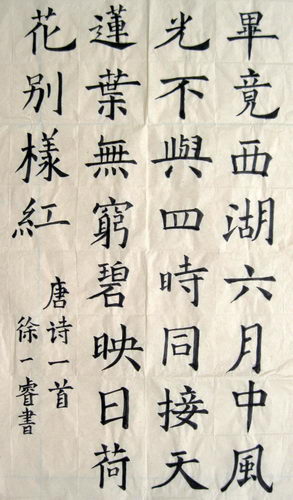 畢竟西湖六月中風
光不與四時同接天
蓮葉無窮碧映日荷
花別樣紅
唐诗一首
徐一睿書